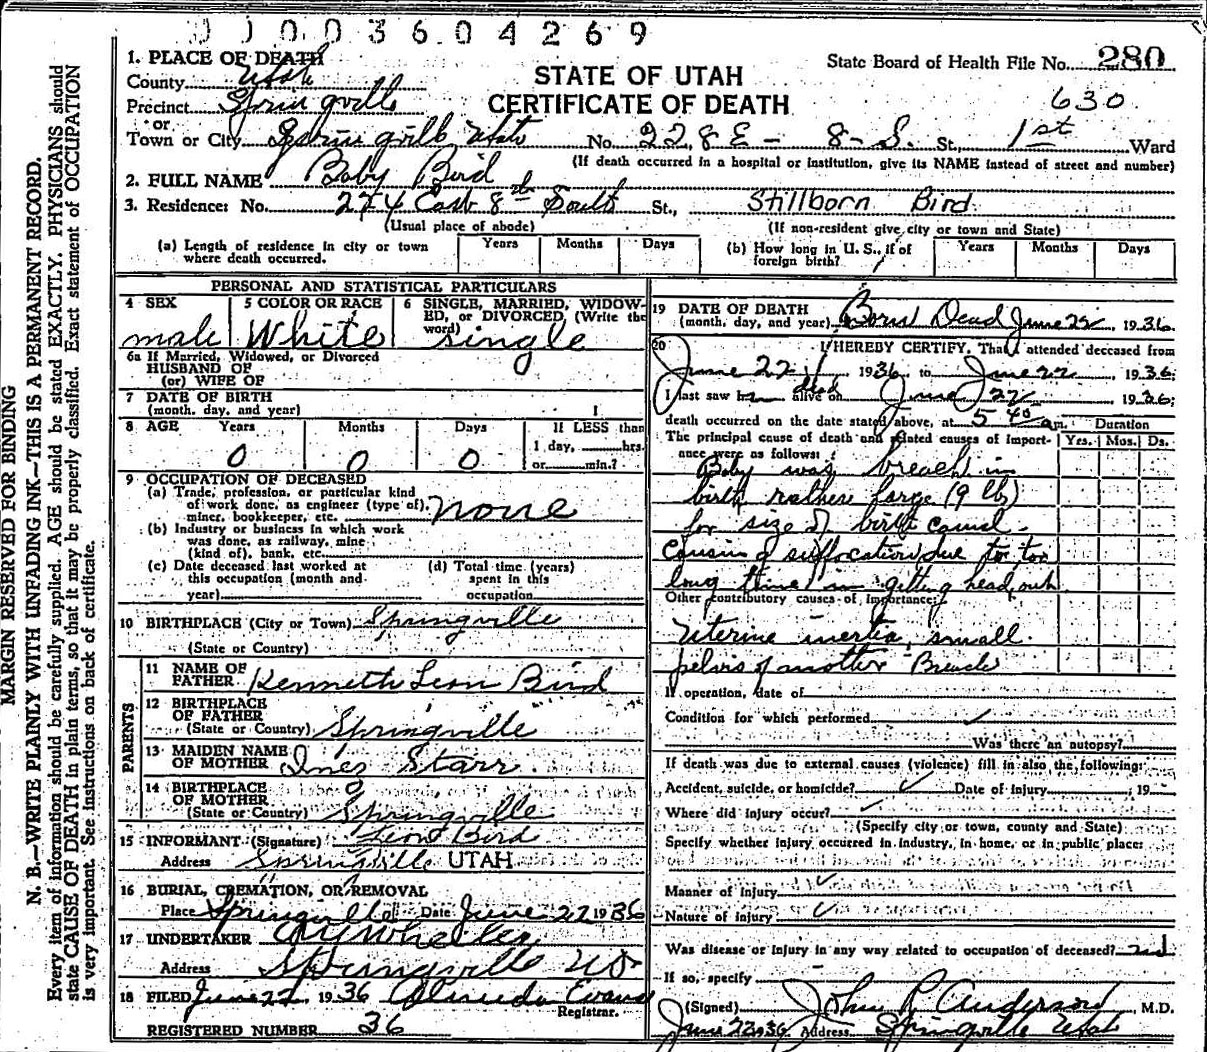 0 1 0 0 3 6 0 4 2 6 9
1. PLACE OF DEATH
County Utah
Precinct Springville
or
Town or City Springville Utah No. 228 E - 8 - S. St., 1st Ward
State Board of Health File No. 280
STATE OF UTAH
CERTIFICATE OF DEATH
630
(If death occurred in a hospital or institution, give its NAME instead of street and number)
2. FULL NAME Baby Bird
3. Residence: No. 274 East 8th South St., Stillborn Bird
(Usual place of abode) (If non-resident give city or town and State)
(a) Length of residence in city or town where death occurred. Years Months Days
(b) How long in U. S., if of foreign birth? Years Months Days
MARGIN RESERVED FOR BINDING
N. B.—WRITE PLAINLY WITH UNFADING INK—THIS IS A PERMANENT RECORD.
Every item of information should be carefully supplied. AGE should be stated EXACTLY. PHYSICIANS should
state CAUSE OF DEATH in plain terms, so that it may be properly classified. Exact statement of OCCUPATION
is very important. See instructions on back of certificate.
PERSONAL AND STATISTICAL PARTICULARS
4 SEX male
5 COLOR OR RACE White
6 SINGLE, MARRIED, WIDOWED, or DIVORCED, (Write the word) single
6a If Married, Widowed, or Divorced
HUSBAND OF
(or) WIFE OF
7 DATE OF BIRTH
(month, day, and year)
8 AGE Years Months Days If LESS than
0 0 0 1 day, hrs.
or min.?
9 OCCUPATION OF DECEASED
(a) Trade, profession, or particular kind
of work done, as engineer (type of),
miner, bookkeeper, etc. none
(b) Industry or business in which work
was done, as railway, mine
(kind of), bank, etc.
(c) Date deceased last worked at
this occupation (month and
year)
(d) Total time (years)
spent in this
occupation
10 BIRTHPLACE (City or Town) Springville
(State or Country)
PARENTS
11 NAME OF FATHER Kenneth Leon Bird
12 BIRTHPLACE OF FATHER
(State or Country) Springville
13 MAIDEN NAME OF MOTHER Inez Starr
14 BIRTHPLACE OF MOTHER
(State or Country) Springville
15 INFORMANT (Signature) Leon Bird
Address Springville UTAH
16 BURIAL, CREMATION, OR REMOVAL
Place Springville Date June 22 1936
17 UNDERTAKER
Address Springville
18 FILED June 22, 1936 Almeda Evans
Registrar.
REGISTERED NUMBER 36
19 DATE OF DEATH
(month, day, and year) Born Dead June 22 1936
20 I HEREBY CERTIFY, That I attended deceased from
June 22, 1936 to June 22, 1936;
I last saw h alive on dead June 22 1936;
death occurred on the date stated above, at 5 40 a.m. Duration
The principal cause of death and related causes of importance were as follows: Yrs. Mos. Ds.
Baby was breach in
birth rather large (9 lb)
for size of birth canal -
Causing suffocation due to too
long time in getting head out
Other contributory causes of importance:
Uterine inertia, small
pelvis of mother Breach
If operation, date of
Condition for which performed
Was there an autopsy?
If death was due to external causes (violence) fill in also the following:
Accident, suicide, or homicide? Date of injury , 19
Where did injury occur?
(Specify city or town, county and State)
Specify whether injury occurred in industry, in home, or in public place:
Manner of injury
Nature of injury
Was disease or injury in any way related to occupation of deceased?
If so, specify
(Signed) John R Anderson, M.D.
June 22 36 Address Springville Utah